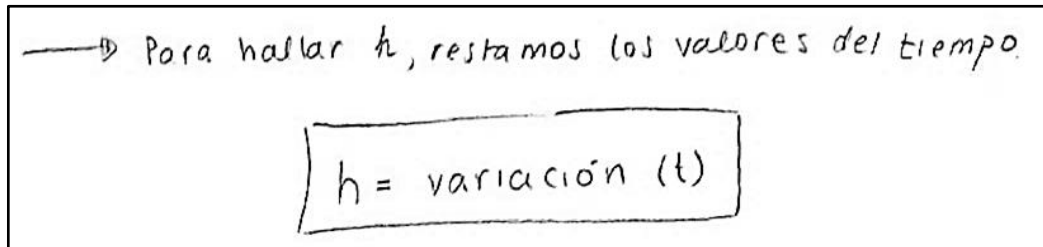 Para hallar h, restamos los valores del tiempo.
h = variación (t)